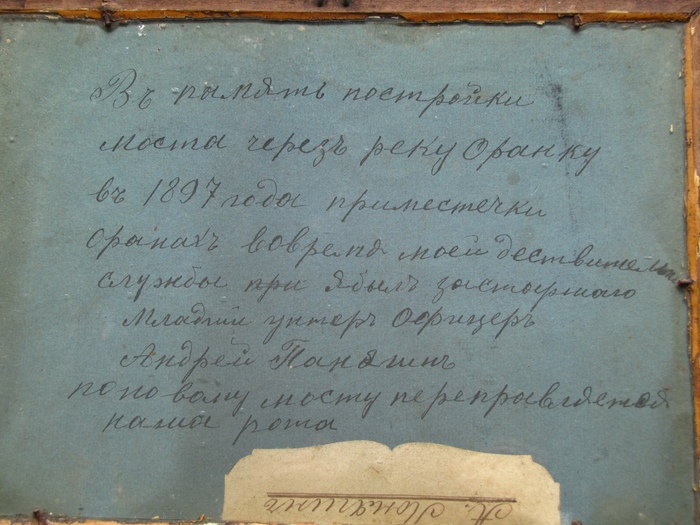 Въ память постройки
моста черезъ реку Оранку
въ 1897 года приместечки
Оранахъ вовремя моей дествительн
службы при ябылъ застаршаго
Младши унтеръ Офицеръ
Андрей Панятинъ
поновому мосту переправляется
наша рота